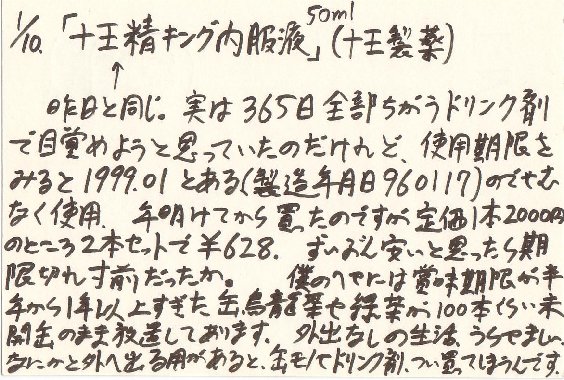 1/10.「十王精キング内服液」50ml(十王製薬)
↑
昨日と同じ。実は365日全部ちがうドリンク剤
で目覚めようと思っていたのだけれど、使用期限を
みると1999.01とある(製造年月日960117)のでやむ
なく使用. 年明けてから買ったのですが定価1本2000円
のところ2本セットで¥628. ずいぶん安いと思ったら期
限切れ寸前だったか。 僕のへやには賞味期限が半
年から1年以上すぎた缶烏龍茶や緑茶が100本くらい未
開缶のまま放置してあります. 外出なしの生活、うらやましい.
なにかと外へ出る用があると、缶モノやドリンク剤、つい買ってしまうんです.